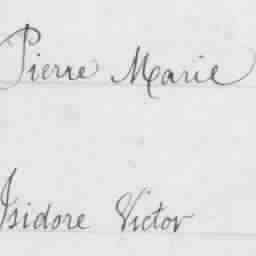 Pierre Marie
Isidore Victor